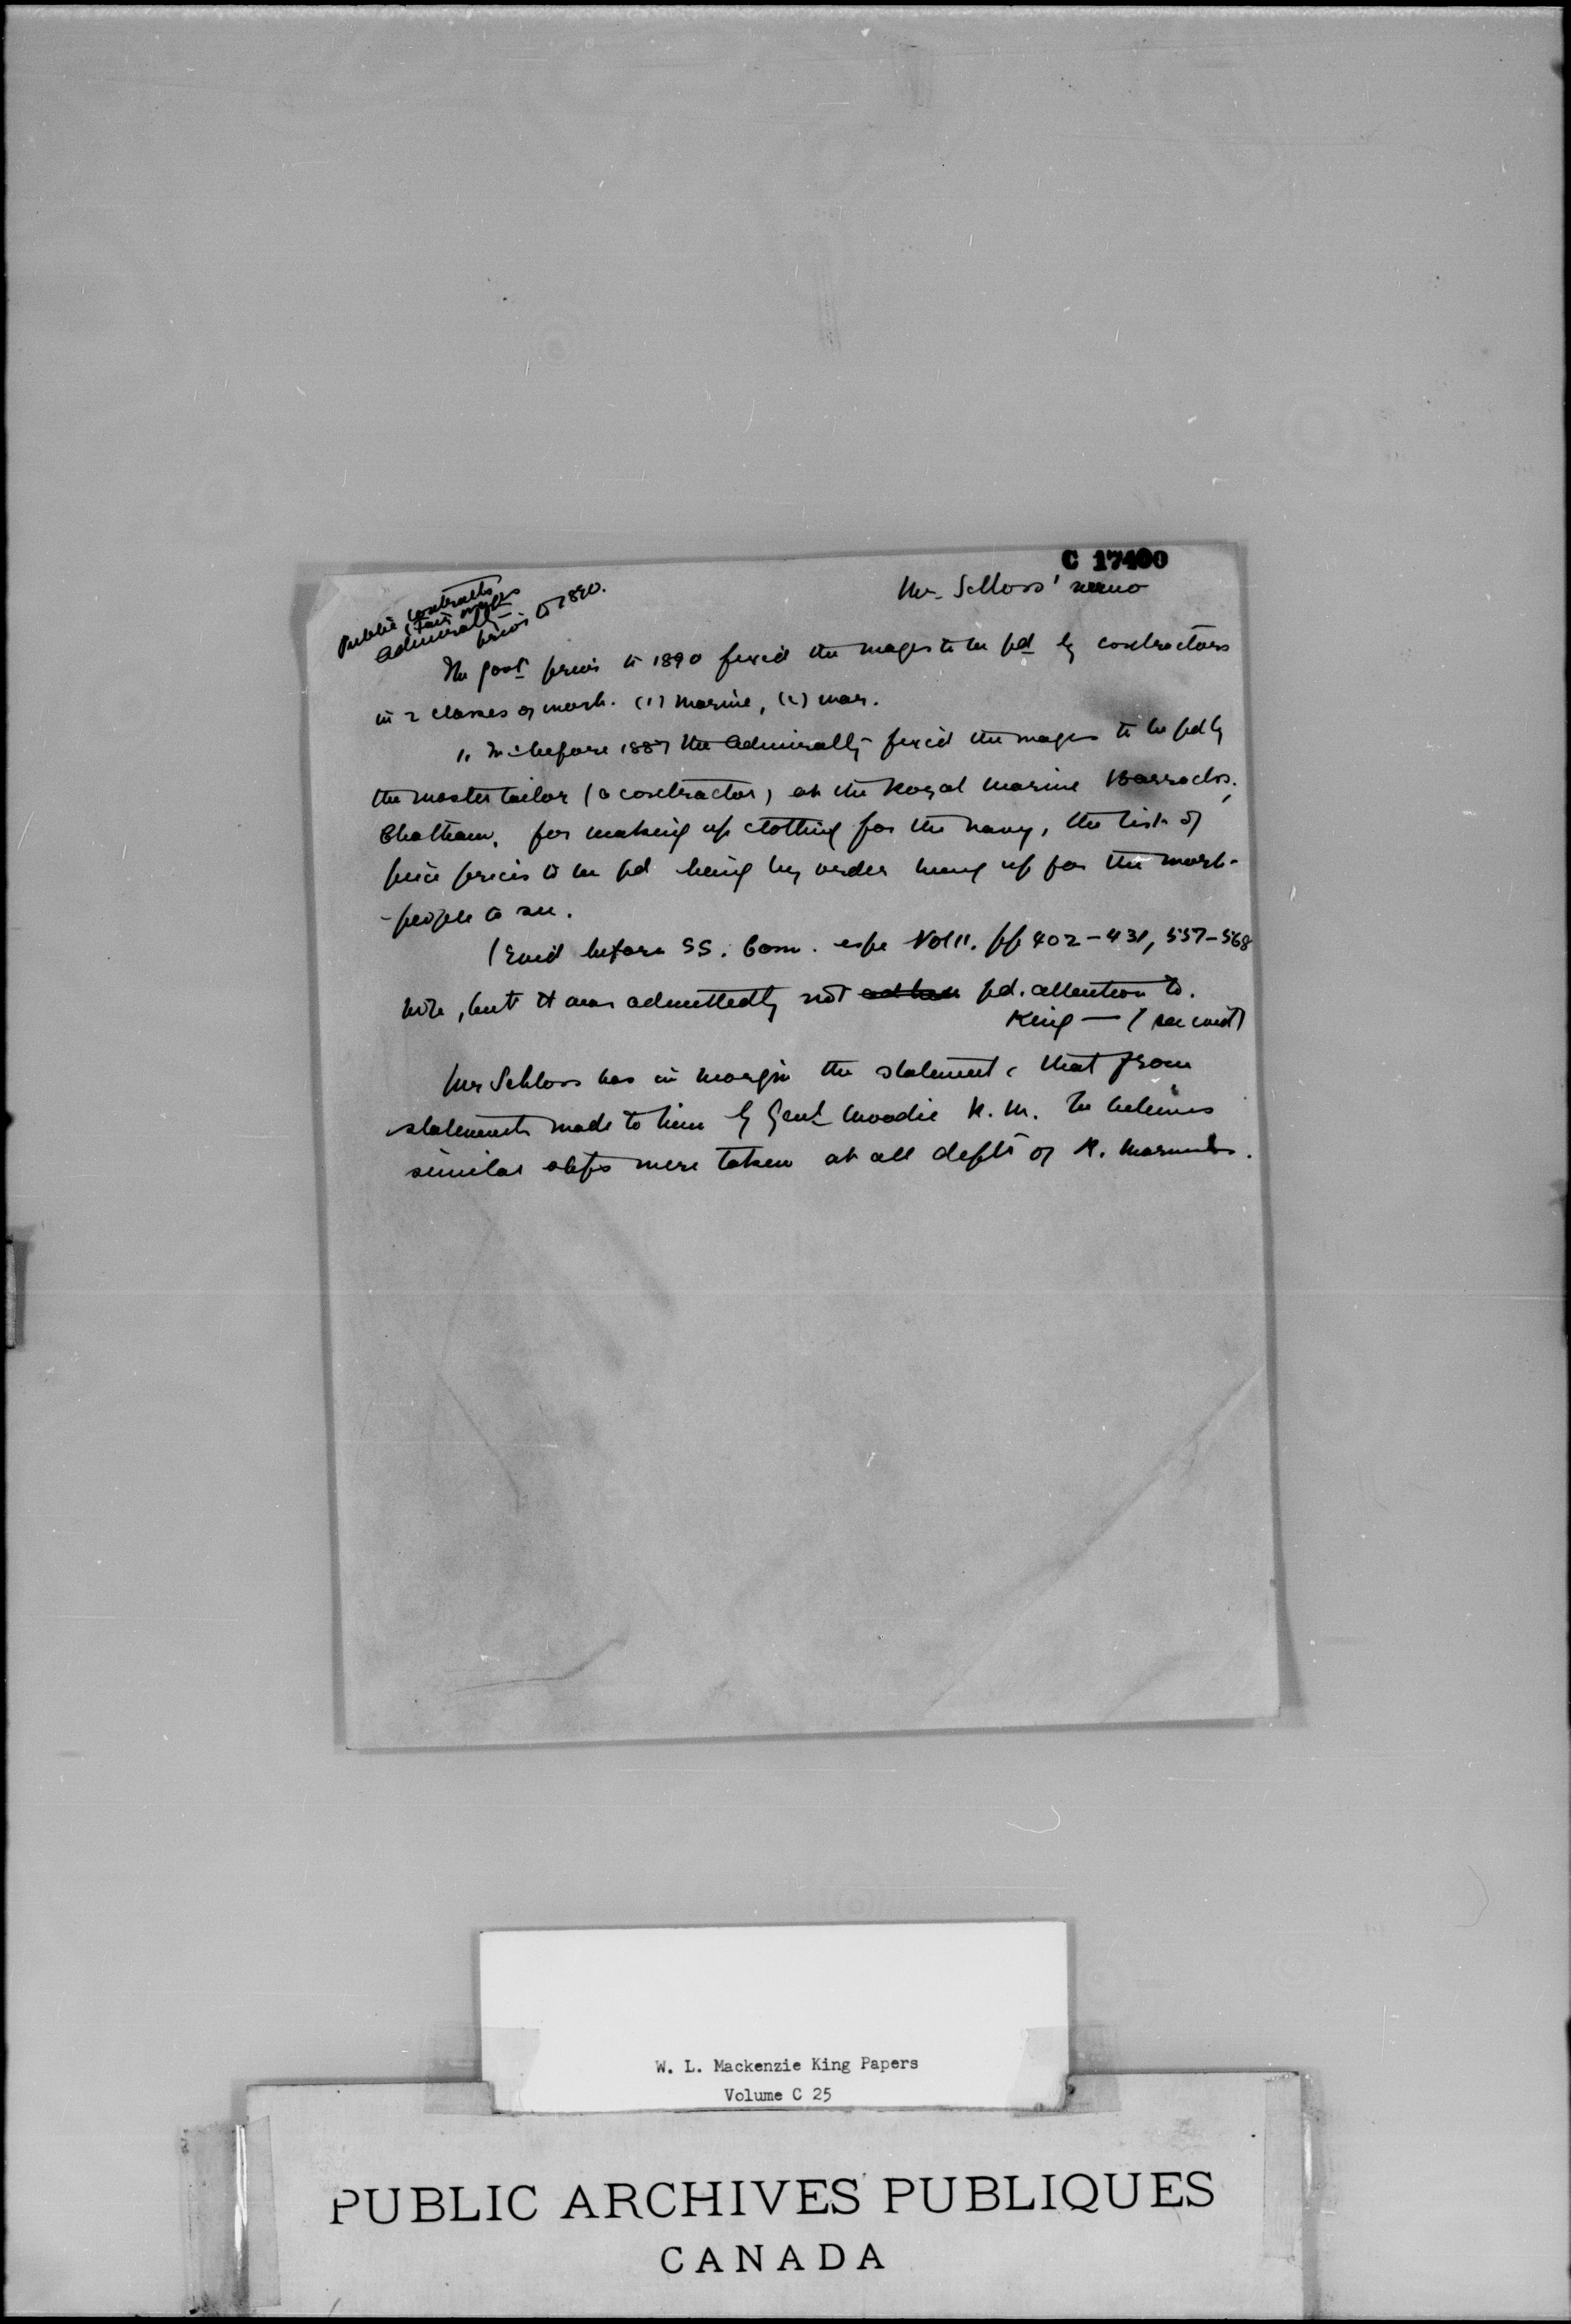 C 17400
Mr. Schloss' memo
Public Contracts
(Fair wages
Admiralty
prior to 1890.
The govt prior to 1890 fixed the wages to be pd by contractors
in 2 classes of work. (1) Marine, (2) war.
1. In & before 1887 the Admiralty fixed the wages to be pd by
the master tailor (a contractor) at the Royal Marine Barracks,
Chatham, for making up clothing for the navy, the list of
piece prices to be pd being by order hung up for the work-
-people to see.
(Evid before SS. Com. espe Vol 11. pp 402-431, 557-568
note, but it was admittedly not pd. attention to.
King — (see evid)
Mr Schloss has in margin the statement, that from
statements made to him by Genl Moodie R.M. he believes
similar steps were taken at all depts of R. Marines.
W. L. Mackenzie King Papers
Volume C 25
PUBLIC ARCHIVES PUBLIQUES
CANADA